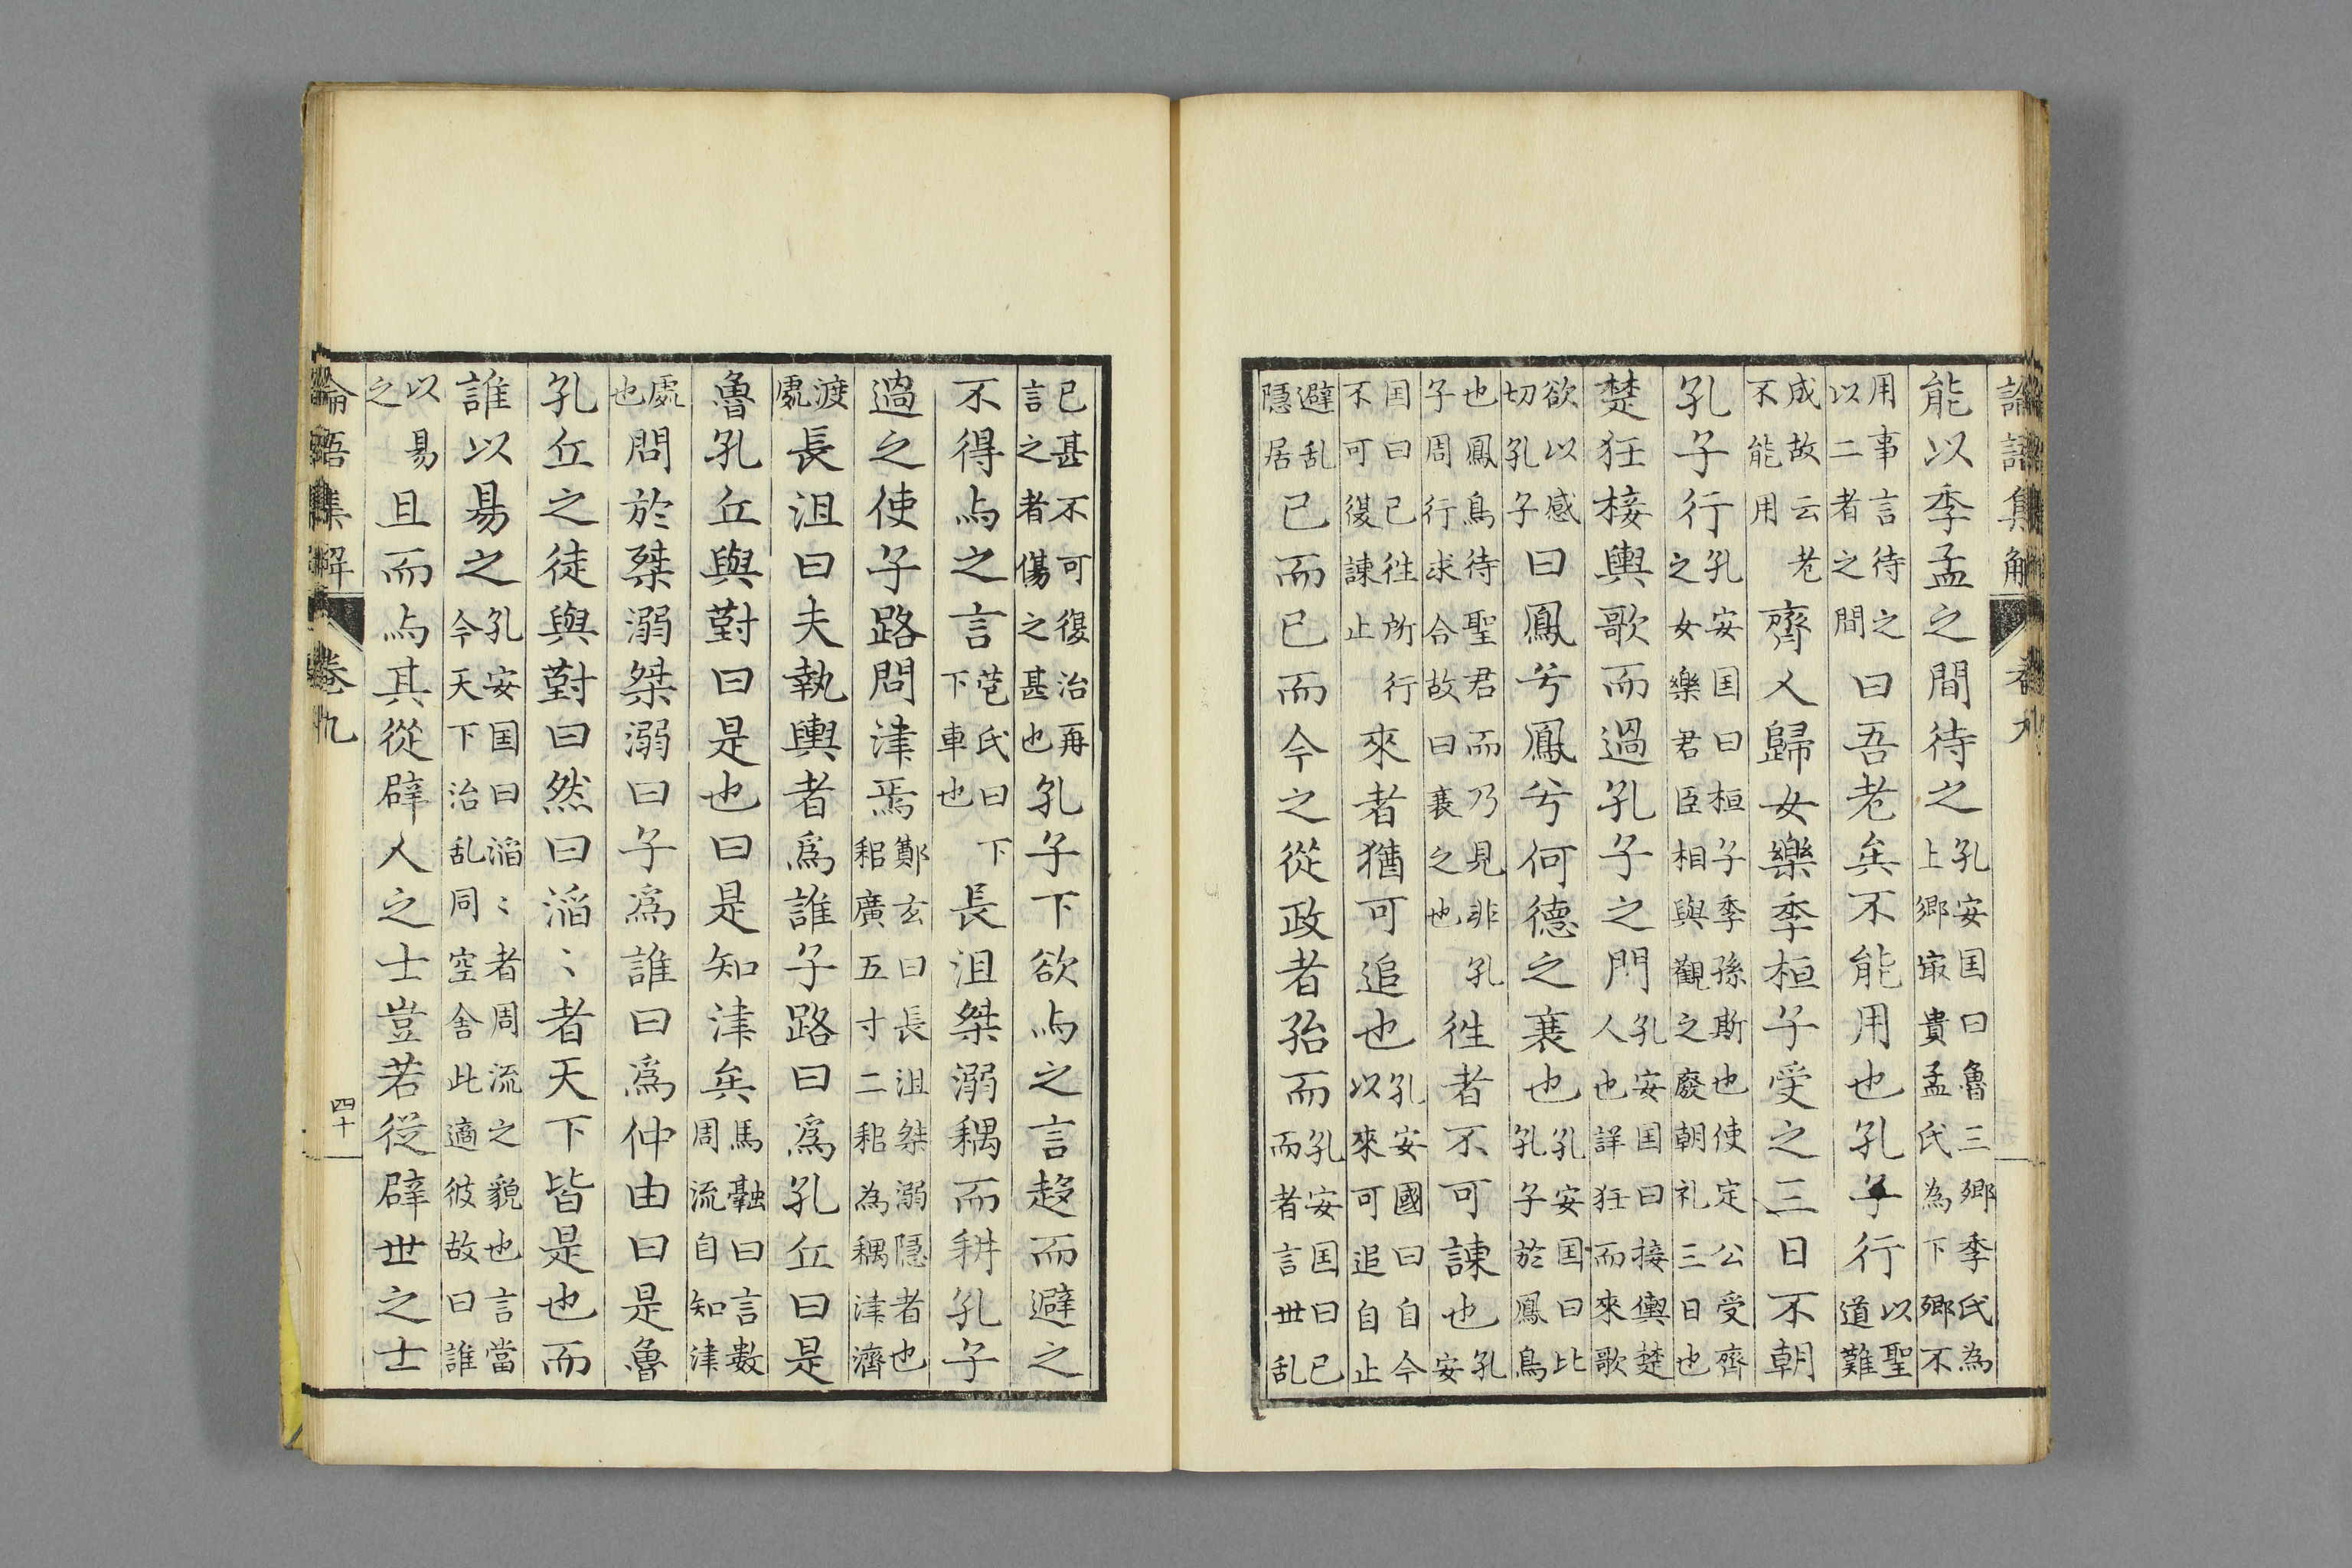 論語集解 卷九
能以季孟之間待之孔安囯曰魯三卿季氏為上卿冣貴孟氏為下卿不
用事言待之以二者之間曰吾老矣不能用也孔子行以聖道難
成故云老不能用齊人歸女樂季桓子受之三日不朝
孔子行孔安囯曰桓子季孫斯也使定公受齊之女樂君臣相與觀之廢朝礼三日也
楚狂接輿歌而過孔子之門孔安囯曰接輿楚人也詳狂而來歌
欲以感切孔子曰鳳兮鳳兮何德之衰也孔安囯曰比孔子於鳳鳥
也鳳鳥待聖君而乃見非孔子周行求合故曰衰之也徃者不可諫也孔安
囯曰已徃所行不可復諫止來者猶可追也孔安國曰自今以來可追自止
避乱隱居已而已而今之從政者殆而孔安囯曰已而者言世乱
已甚不可復治再言之者傷之甚也孔子下欲与之言趍而避之
不得与之言苞氏曰下下車也長沮桀溺耦而耕孔子
過之使子路問津焉鄭玄曰長沮桀溺隱者也耜廣五寸二耜為耦津濟
渡處長沮曰夫執輿者爲誰子路曰爲孔丘曰是
魯孔丘與對曰是也曰是知津矣馬融曰言數周流自知津
處也問於桀溺桀溺曰子爲誰曰爲仲由曰是魯
孔丘之徒與對曰然曰滔〻者天下皆是也而
誰以易之孔安囯曰滔〻者周流之貌也言當今天下治乱同空舍此適彼故曰誰
以易之且而与其從辟人之士豈若從辟世之士
論語集解 卷九 四十